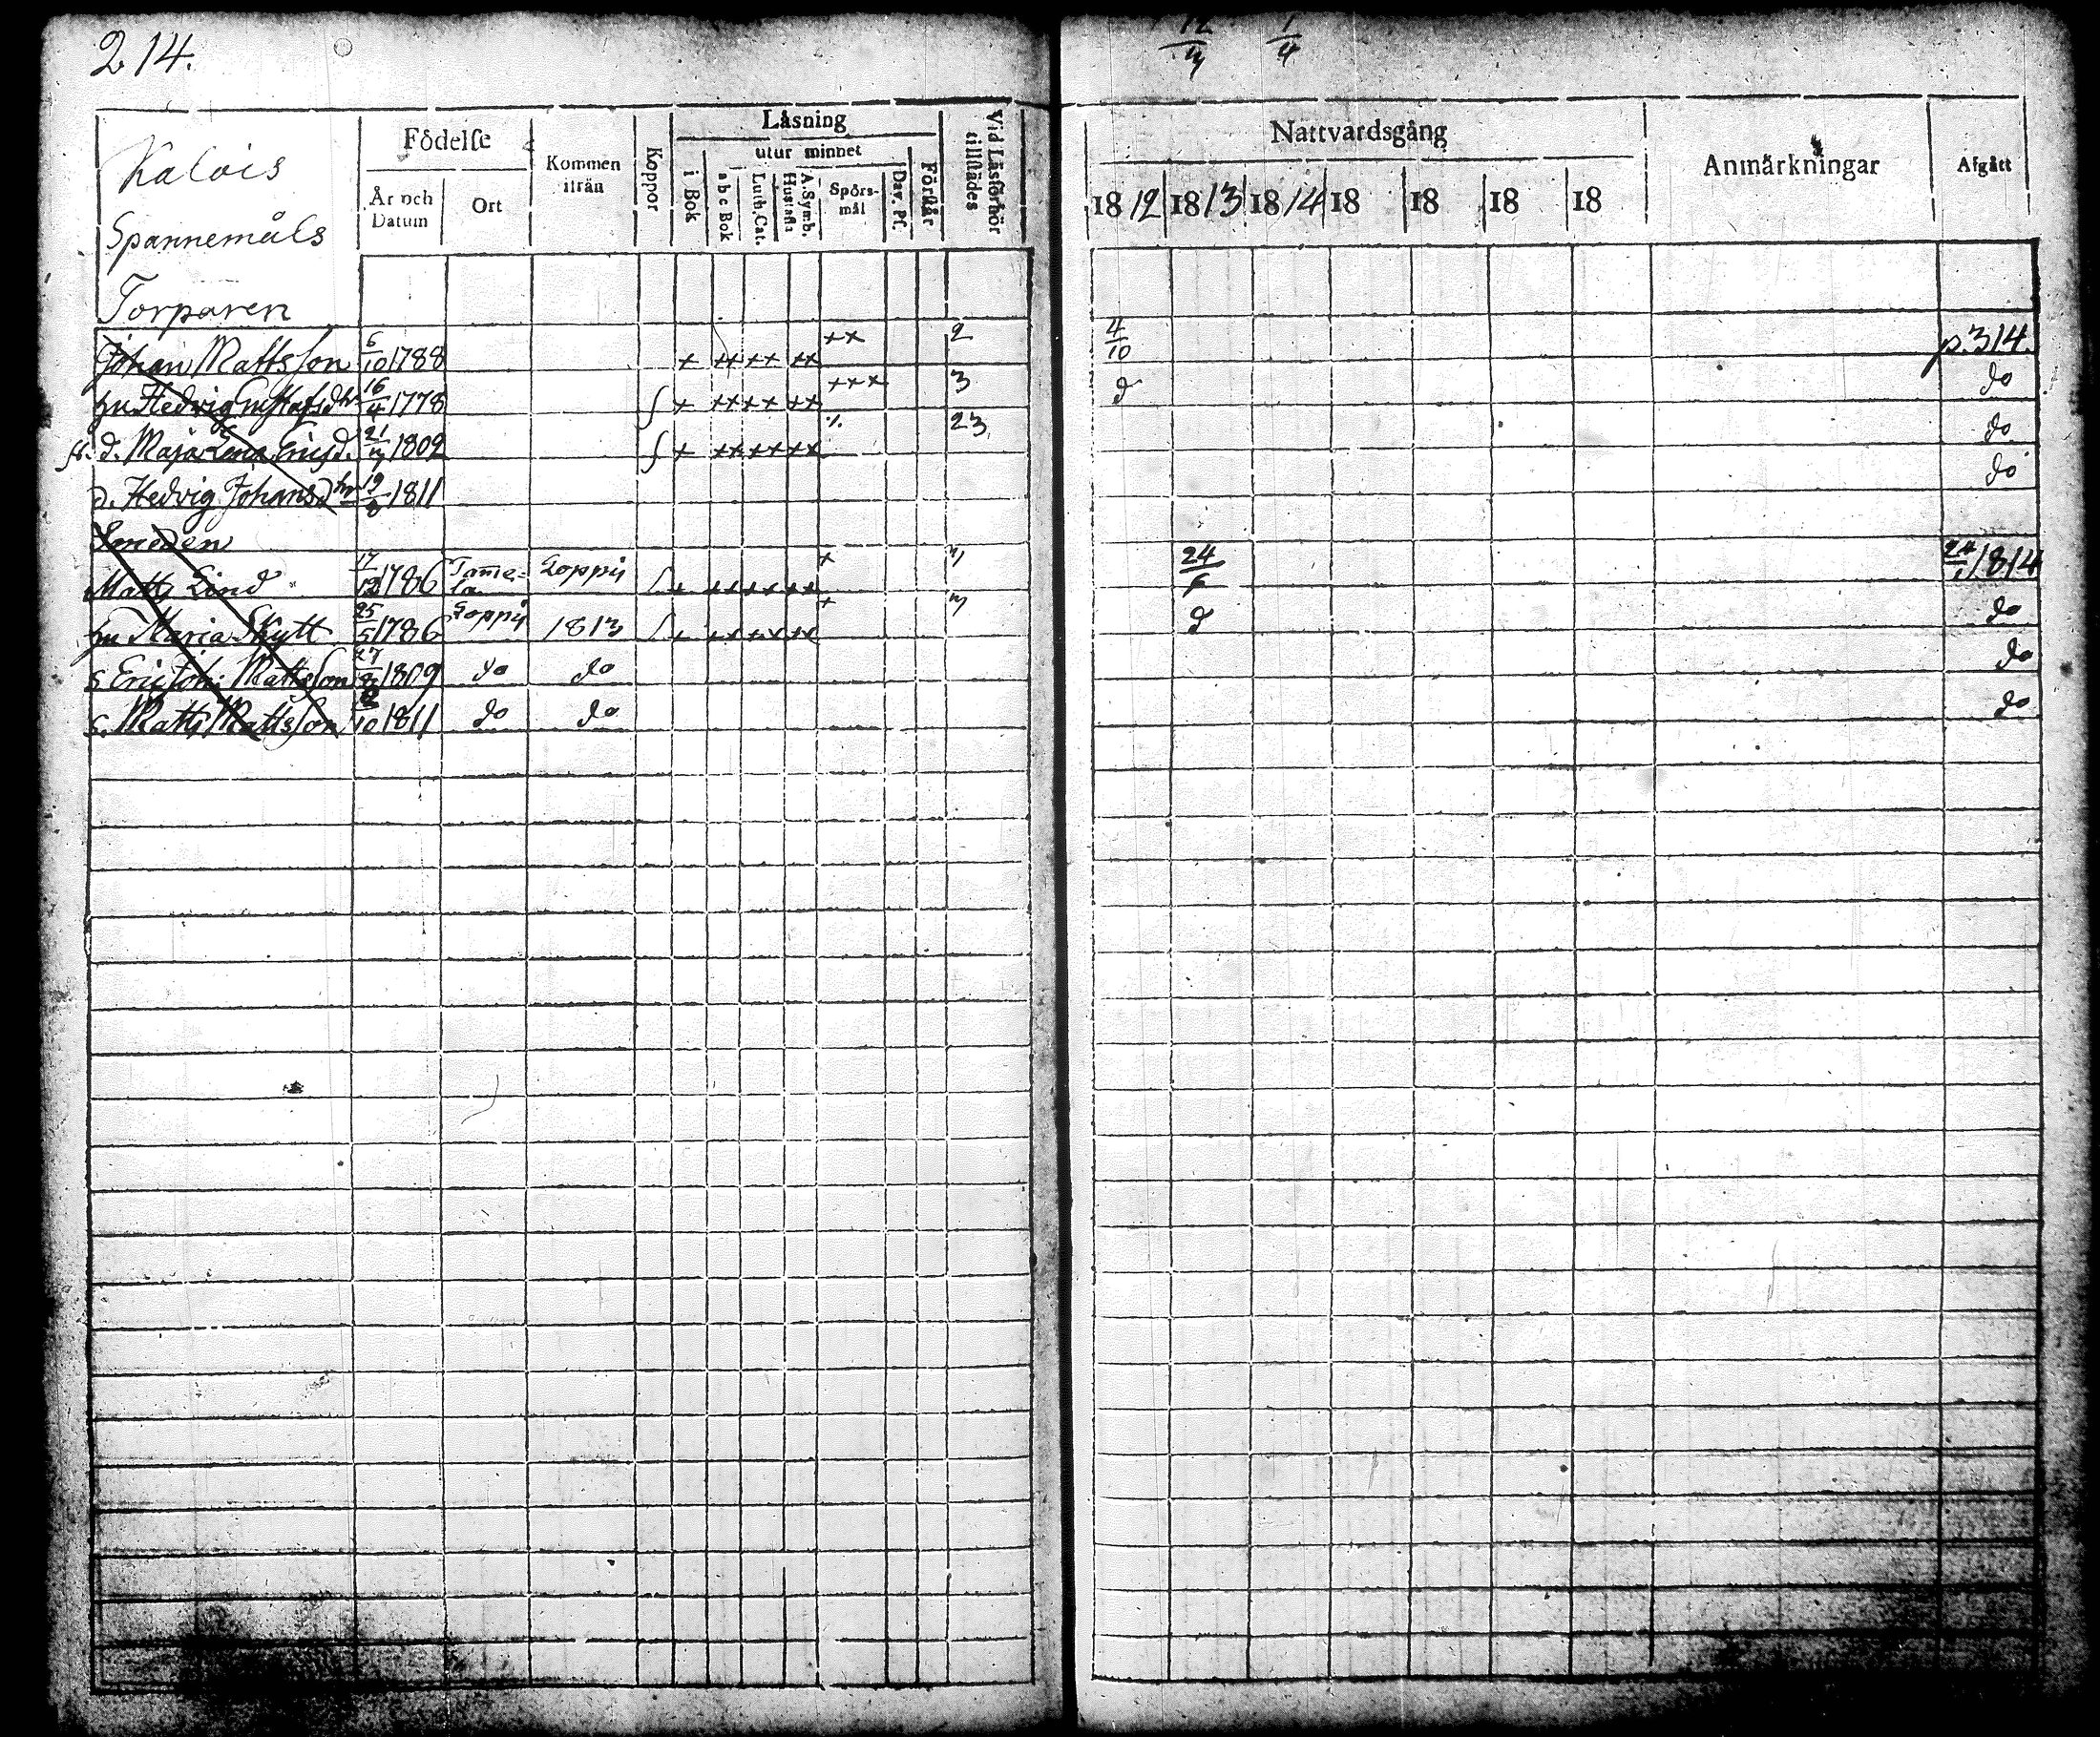 214.
12/4 1/4
Kalois
Spannemåls
Torparen
Födelse
År och Datum
Ort
Kommen ifrån
Koppor
Läsning
utur minnet
i Bok
a b c Bok
Luth. Cat.
A. Symb. Hustafla
Spörsmål
Dav. Ps.
Förstår
Vid Läsförhör tillstädes
Nattvardsgång
1812 1813 1814 18 18 18 18
Anmärkningar
Afgått
Johan Mattsson 6/10 1788 + ++ ++ ++ ++ 2 4/10 p. 314.
hu Hedvig Gustafsdr 16/4 1778 ʃ + ++ ++ ++ +++ 3 d do
d. Maja Lena Ericsd. 1809 ʃ + ++ ++ ++ 23 do
d. Hedvig Johansdr 1811 do
Smeden
Matts Lind 17/12 1786 Tamela Loppis ʃ + ++ ++ ++ + 24/6 1814
hu Maria Skytt 25/5 1786 Loppis 1813 ʃ + ++ ++ ++ + d do
s. Eric Joh: Mattsson 1809 do do do
s. Matts Mattsson 1811 do do do